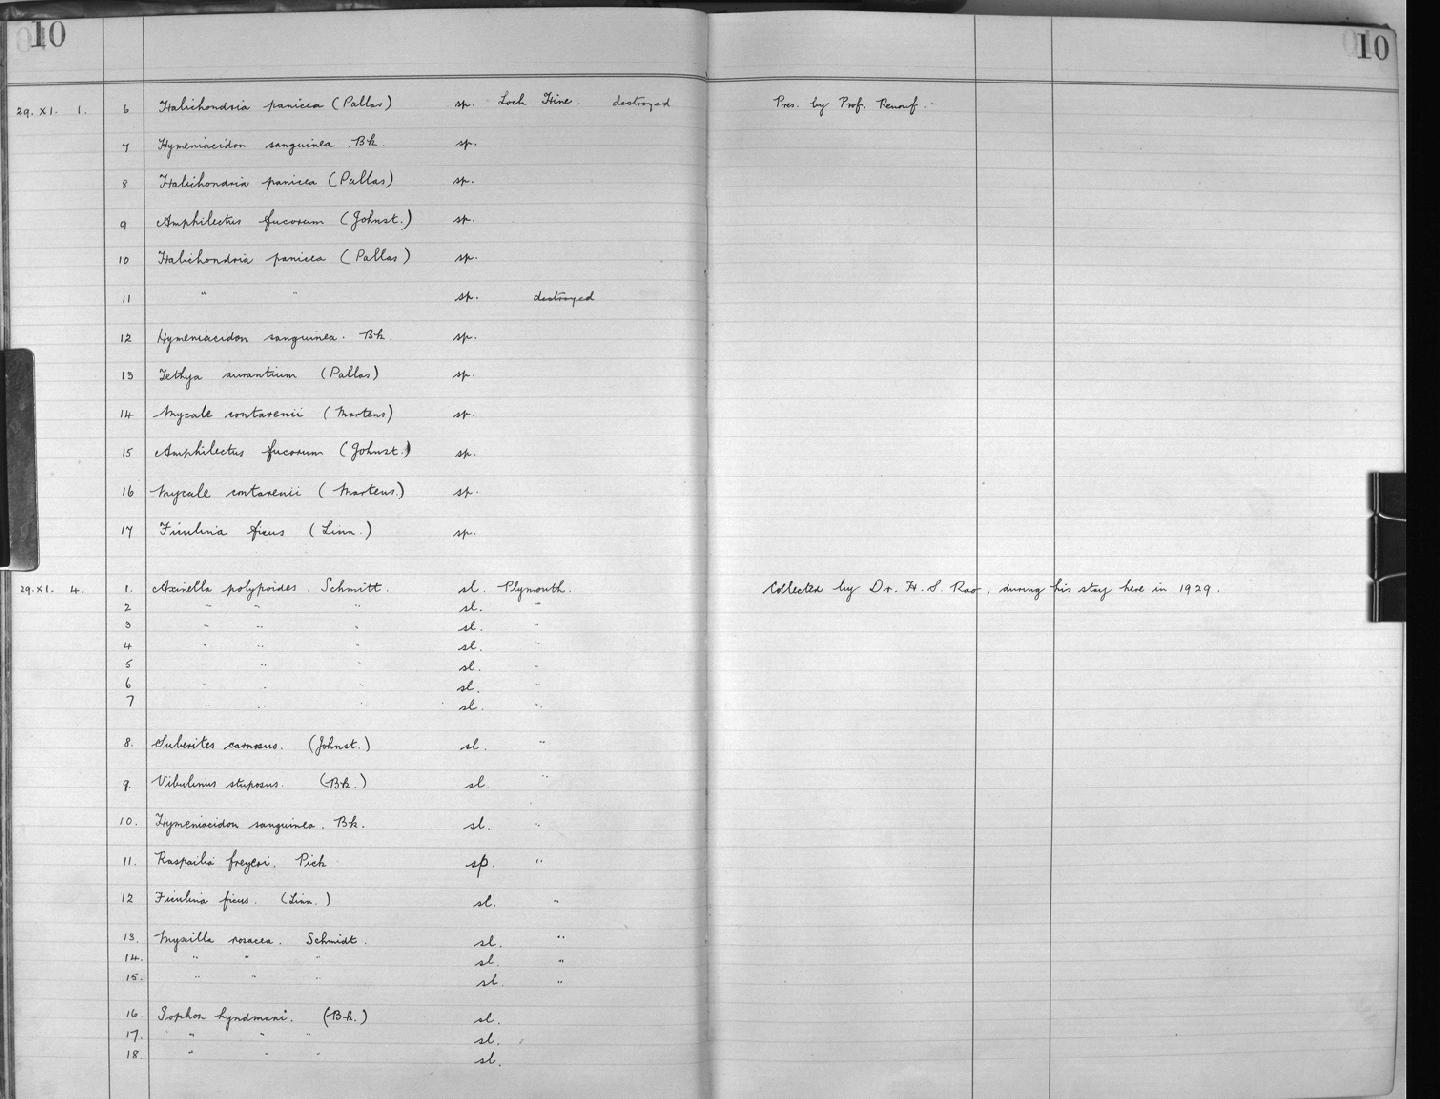 10 10
29. XI. 1. 6 Halichondria panicea (Pallas) sp. Loch Hine. destroyed Pres. by Prof. Renouf.
7 Hymeniacidon sanguinea Bk. sp.
8 Halichondria panicea (Pallas) sp.
9 Amphilectus fucorum (Johnst.) sp.
10 Halichondria panicea (Pallas) sp.
11 " " sp. destroyed
12 Hymeniacidon sanguinea. Bk sp.
13 Tethya aurantium (Pallas) sp.
14 Mycale contarenii (Martens) sp.
15 Amphilectus fucorum (Johnst.) sp.
16 Mycale contarenii (Martens.) sp.
17 Ficulina ficus (Linn.) sp.
29. XI. 4. 1. Axinella polypoides. Schmitt. sl. Plymouth. Collected by Dr. H. S. Rao, during his stay here in 1929.
2 " " " sl. "
3 " " " sl. "
4 " " " sl. "
5 " " sl. "
6 " " sl. "
7 " " " sl. "
8. Suberites carnosus. (Johnst.) sl. "
9. Vibulinus stuposus. (Bk.) sl "
10. Hymeniacidon sanguinea. Bk. sl. "
11. Raspailia freyeri. Pick sp. "
12 Ficulina ficus. (Linn.) sl. "
13. Myxilla rosacea. Schmidt. sl. "
14. " " " sl. "
15. " " " sl. "
16 Iophon hyndmani. (Bk.) sl.
17. " " " sl.
18. " " " sl.